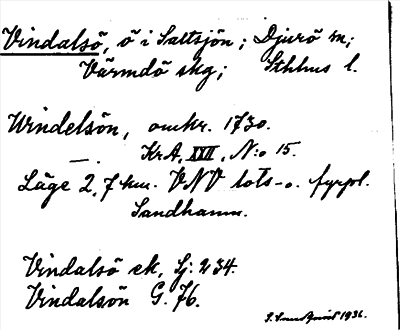 Vindalsö, ö i Saltsjön; Djurö sn;
Värmdö skg; Sthlms l.
Windelsön, omkr. 1730.
—. KrA, XXII, N:o 15.
Läge 2,7 km. VNV lots- o. fyrpl.
Sandhamn.
Vindalsö ek, Sj: 234.
Vindalsön G. 76.
1936.